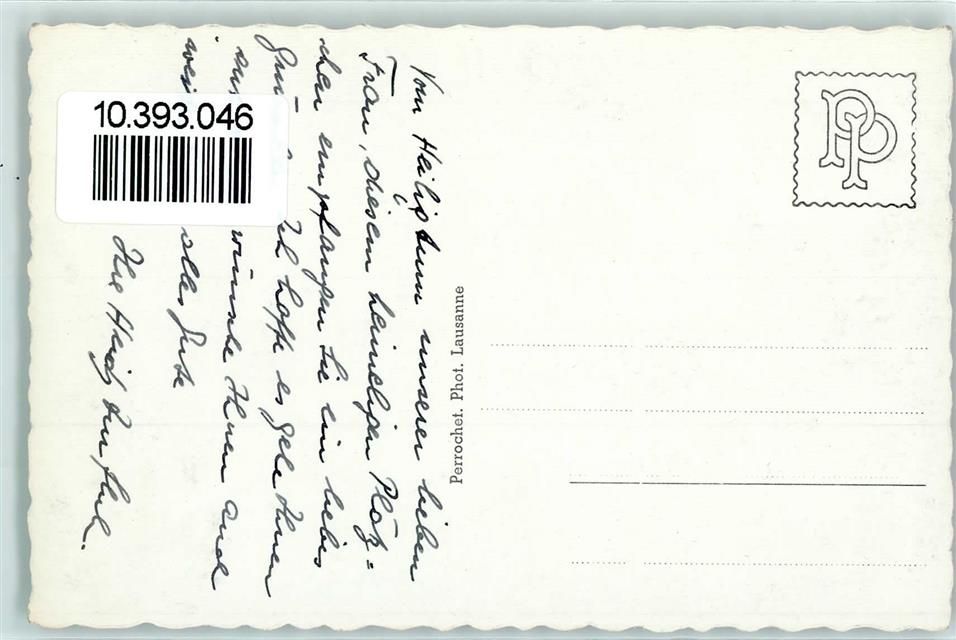 Vom Heiligtum unserer lieben
Frau, diesem heimeligen Plätz=
chen empfangen Sie ein liebes
Ich hoffe es gehe Ihnen
wünsche Ihnen auch
alles Gute
Ihre Heidy
Perrochet. Phot. Lausanne
PP
10.393.046